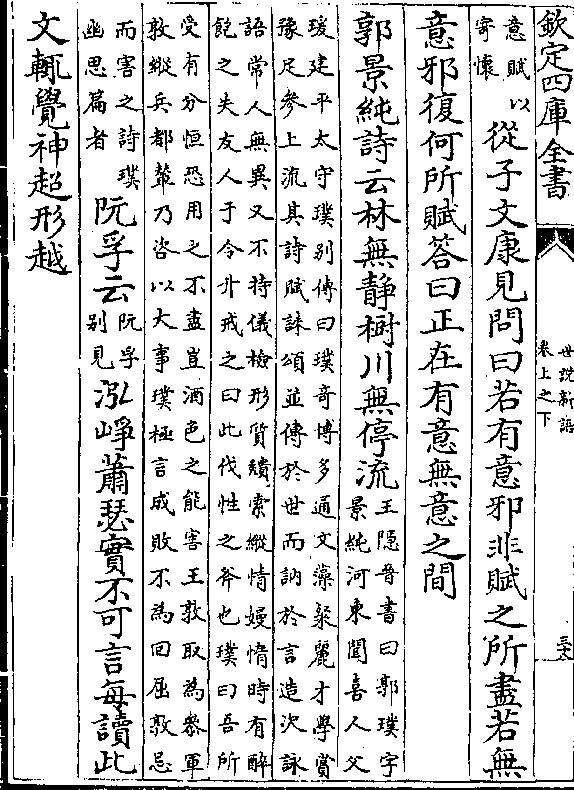 欽定四庫全書
世說新語
卷上之下
意賦以
寄懷
從子文康見問曰若有意邪非賦之所盡若無
意邪復何所賦答曰正在有意無意之間
郭景純詩云林無静樹川無停流
王隱晉書曰郭璞字
景純河東聞喜人父
瑗建平太守璞别傳曰璞奇博多通文藻粲麗才學賞
豫足參上流其詩賦誄頌並傳於世而訥於言造次詠
語常人無異又不持儀檢形質穨索縱情嫚惰時有醉
飽之失友人于令升戒之曰此伐性之斧也璞曰吾所
受有分恒恐用之不盡豈酒色之能害王敦取為參軍
敦縱兵都輦乃咨以大事璞極言成敗不為回屈敦忌
而害之詩璞
幽思篇者
阮孚云
阮孚
别見
泓崢蕭瑟實不可言每讀此
文輒覺神超形越